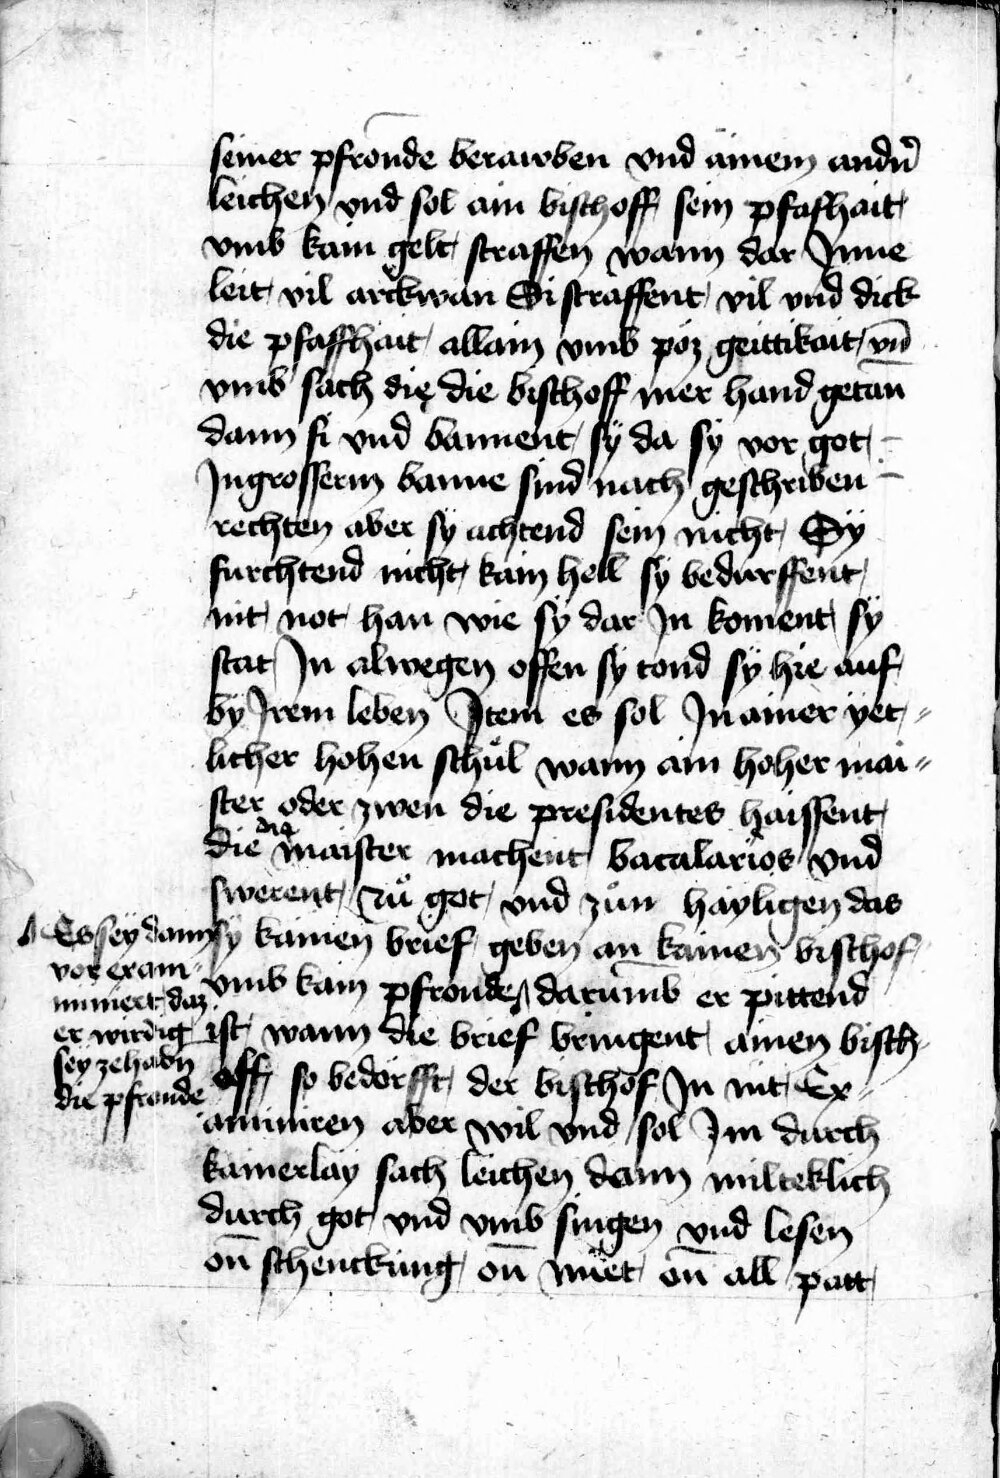 seiner pfronde berawben vnd ainem andn̄
leichen vnd sol ain bischoff sein pfafhait
vmb kain gelt straffen wann dar Inne
leit vil arckwan Si straffent vil vnd dick
die pfaffhait allain vmb poz geittikait vn̄
vmb sach die die bischoff mer hand getan
dann si vnd bannent sÿ da sÿ vor got
Ingrosserm banne sind nach geschriben
rechten aber sy achtend sein nicht Sÿ
furchtend nicht kain hell sÿ bedurffent
nit not han wie sÿ dar In koment sÿ
stat In alwegen offen sÿ tond sÿ hie auf
bÿ Irem leben Item es sol In ainer yet„
licher hohen schůl wann ain hoher mai„
ster oder zwen die presidentes haissent
die da maister machent bacalarios vnd
swerent zů got vnd zůn hayligen das
sy kainen brief geben an kainen bischof
vmb kain pfronde darumb er pittend
Es sey dann
vor exam„
iniert daz
er wirdig
sey zehabn
die pfronde
ist wann die brief bringent ainen bisch„
off so bedorfft der bischof In nit Ex„
aminiren aber wil vnd sol Im durch
kainerlay sach leichen dann milteklich
durch got vnd vmb singen vnd lesen
on̄ schenckung on̄ miet on̄ all patt